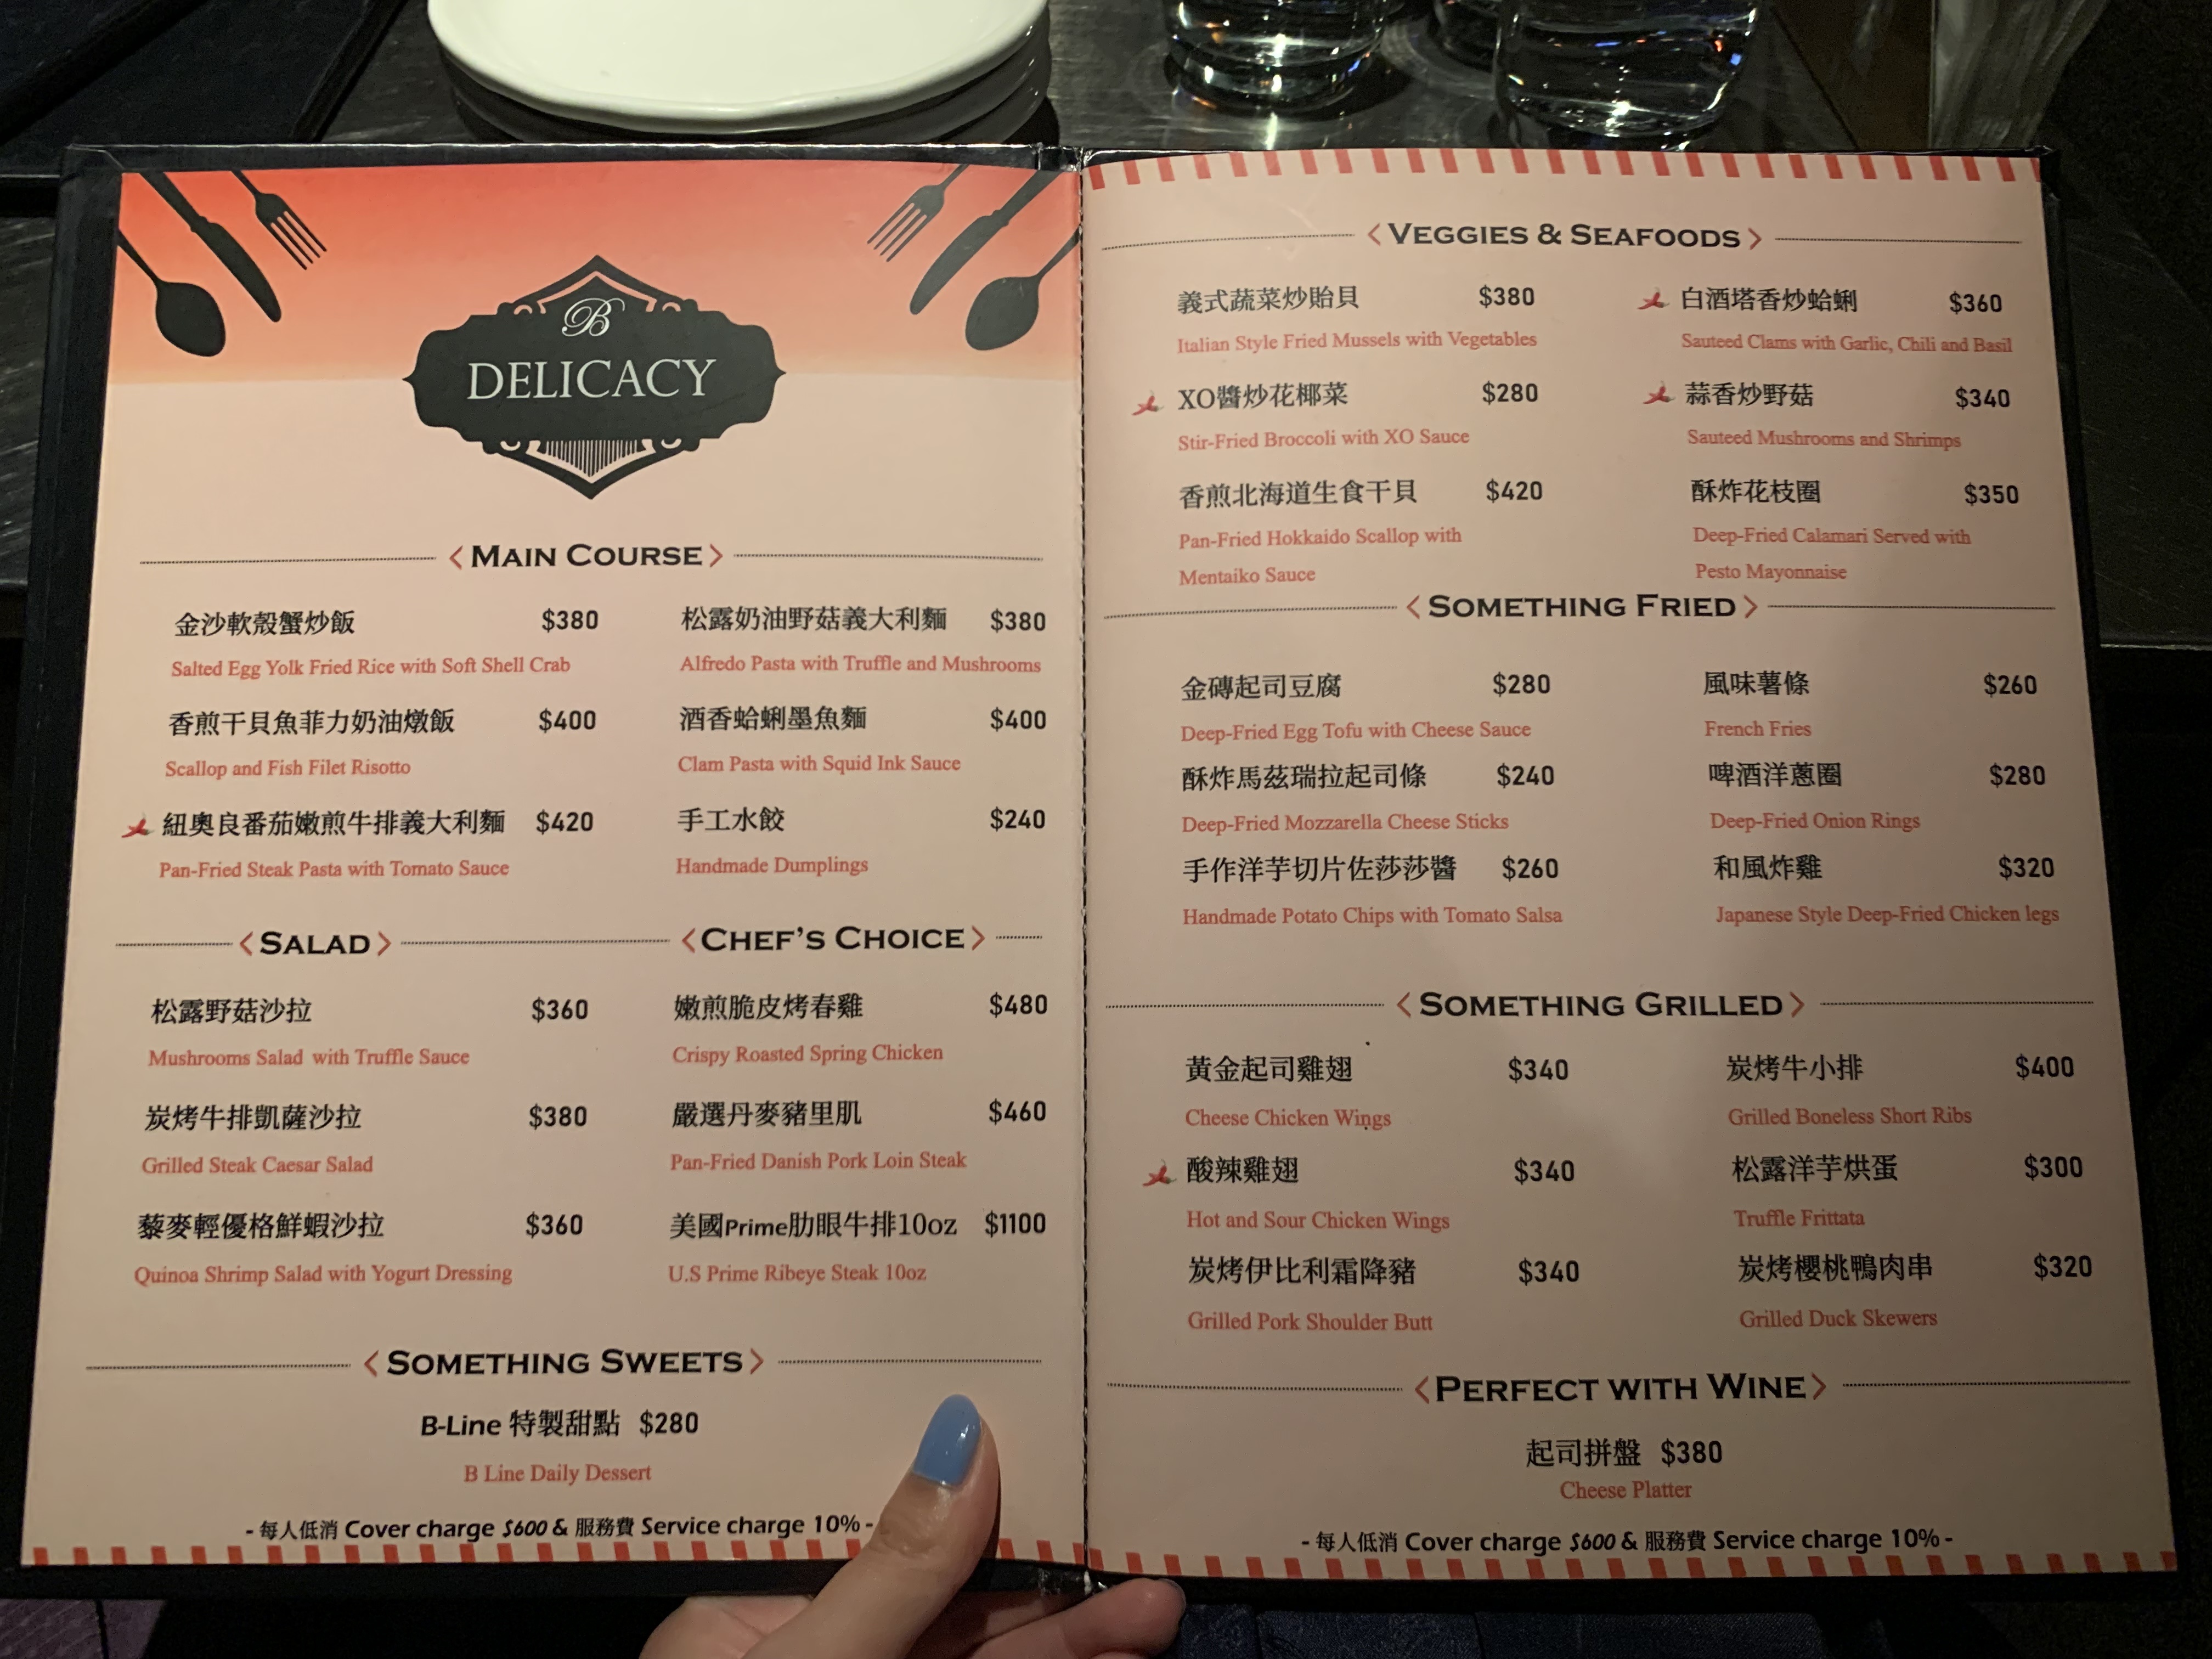 B
DELICACY
< MAIN COURSE >
金沙軟殼蟹炒飯 $380
Salted Egg Yolk Fried Rice with Soft Shell Crab
香煎干貝魚菲力奶油燉飯 $400
Scallop and Fish Filet Risotto
紐奧良番茄嫩煎牛排義大利麵 $420
Pan-Fried Steak Pasta with Tomato Sauce
松露奶油野菇義大利麵 $380
Alfredo Pasta with Truffle and Mushrooms
酒香蛤蜊墨魚麵 $400
Clam Pasta with Squid Ink Sauce
手工水餃 $240
Handmade Dumplings
< SALAD >
松露野菇沙拉 $360
Mushrooms Salad with Truffle Sauce
炭烤牛排凱薩沙拉 $380
Grilled Steak Caesar Salad
藜麥輕優格鮮蝦沙拉 $360
Quinoa Shrimp Salad with Yogurt Dressing
< CHEF'S CHOICE >
嫩煎脆皮烤春雞 $480
Crispy Roasted Spring Chicken
嚴選丹麥豬里肌 $460
Pan-Fried Danish Pork Loin Steak
美國Prime肋眼牛排10oz $1100
U.S Prime Ribeye Steak 10oz
< SOMETHING SWEETS >
B-Line 特製甜點 $280
B Line Daily Dessert
- 每人低消 Cover charge $600 & 服務費 Service charge 10% -
< VEGGIES & SEAFOODS >
義式蔬菜炒貽貝 $380
Italian Style Fried Mussels with Vegetables
XO醬炒花椰菜 $280
Stir-Fried Broccoli with XO Sauce
香煎北海道生食干貝 $420
Pan-Fried Hokkaido Scallop with
Mentaiko Sauce
白酒塔香炒蛤蜊 $360
Sauteed Clams with Garlic, Chili and Basil
蒜香炒野菇 $340
Sauteed Mushrooms and Shrimps
酥炸花枝圈 $350
Deep-Fried Calamari Served with
Pesto Mayonnaise
< SOMETHING FRIED >
金磚起司豆腐 $280
Deep-Fried Egg Tofu with Cheese Sauce
酥炸馬茲瑞拉起司條 $240
Deep-Fried Mozzarella Cheese Sticks
手作洋芋切片佐莎莎醬 $260
Handmade Potato Chips with Tomato Salsa
風味薯條 $260
French Fries
啤酒洋蔥圈 $280
Deep-Fried Onion Rings
和風炸雞 $320
Japanese Style Deep-Fried Chicken legs
< SOMETHING GRILLED >
黃金起司雞翅 $340
Cheese Chicken Wings
酸辣雞翅 $340
Hot and Sour Chicken Wings
炭烤伊比利霜降豬 $340
Grilled Pork Shoulder Butt
炭烤牛小排 $400
Grilled Boneless Short Ribs
松露洋芋烘蛋 $300
Truffle Frittata
炭烤櫻桃鴨肉串 $320
Grilled Duck Skewers
< PERFECT WITH WINE >
起司拼盤 $380
Cheese Platter
- 每人低消 Cover charge $600 & 服務費 Service charge 10% -